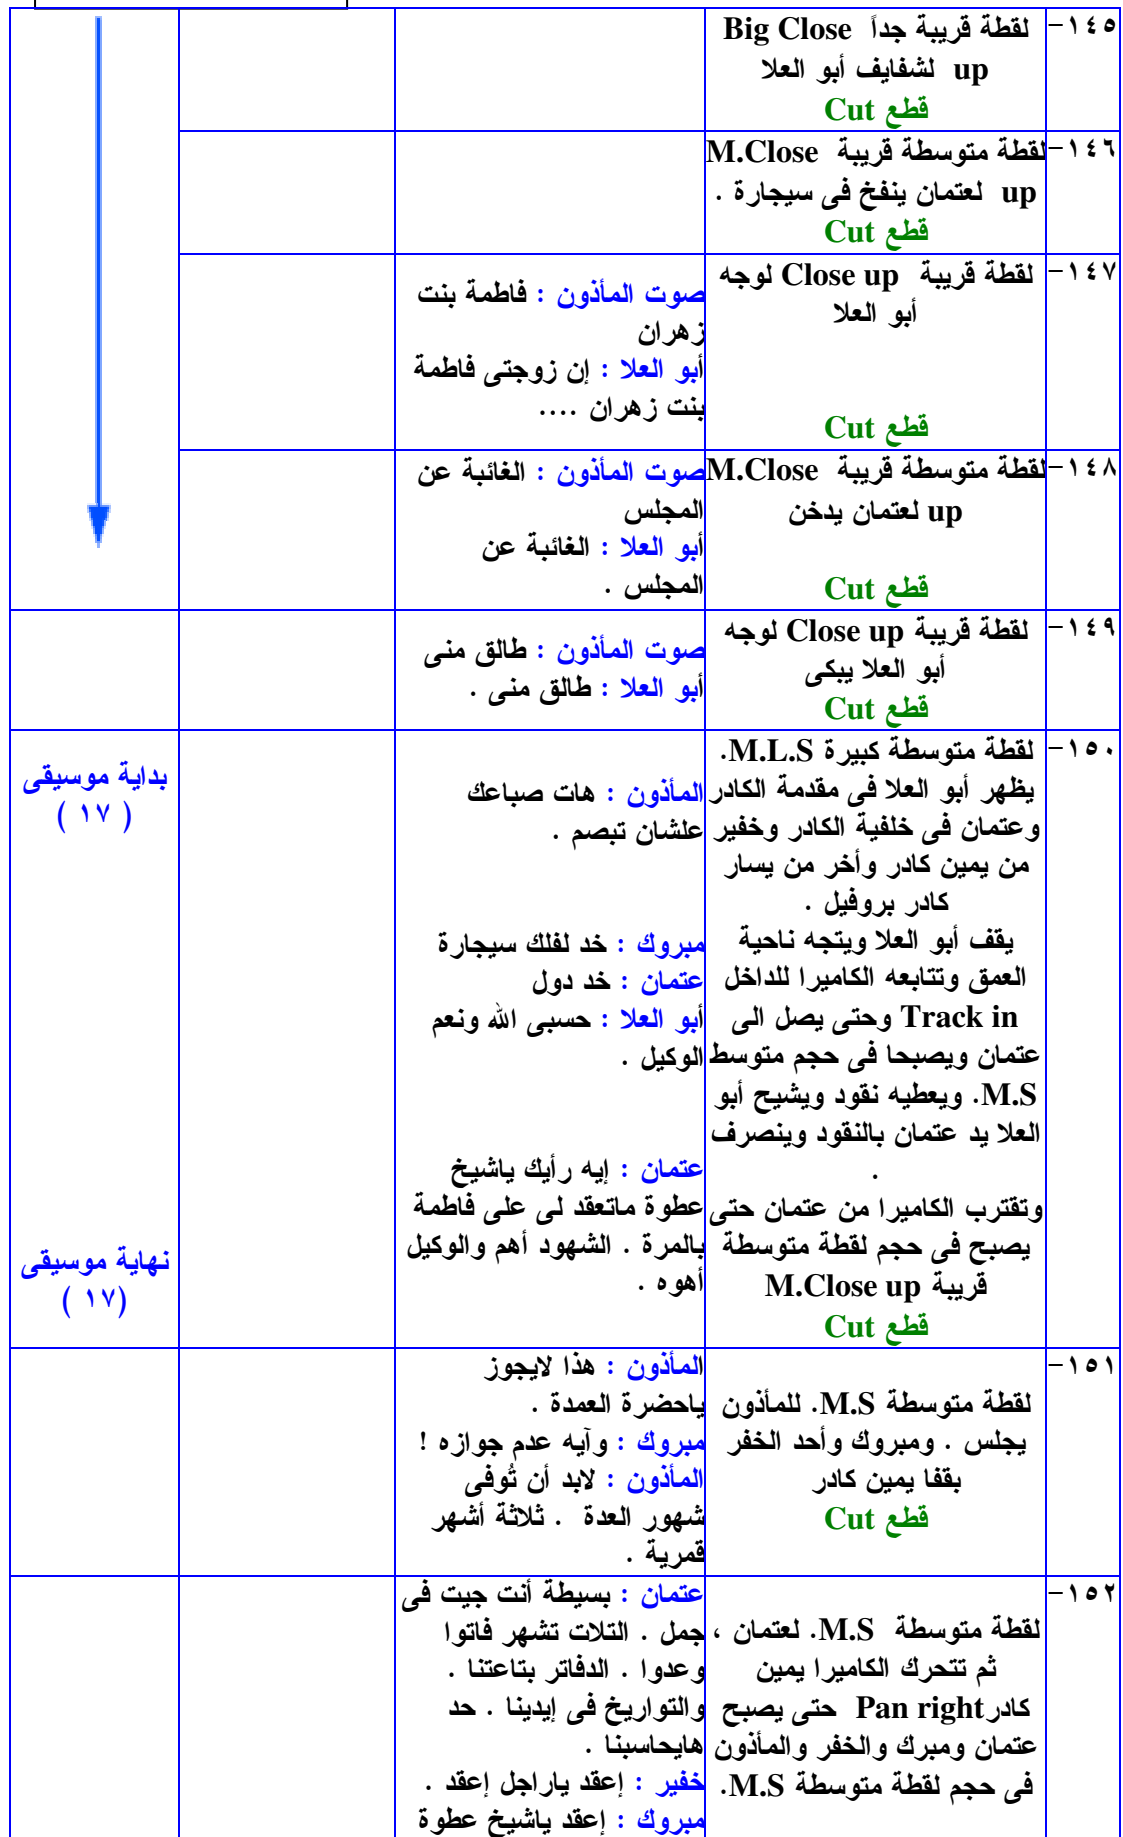 ١٤٥- لقطة قريبة جداً Big Close
up لشفايف أبو العلا
قطع Cut
١٤٦- لقطة متوسطة قريبة M.Close
up لعتمان ينفخ فى سيجارة .
قطع Cut
١٤٧- لقطة قريبة Close up لوجه
أبو العلا
قطع Cut
صوت المأذون : فاطمة بنت
زهران
أبو العلا : إن زوجتى فاطمة
بنت زهران ....
١٤٨- لقطة متوسطة قريبة M.Close
up لعتمان يدخن
قطع Cut
صوت المأذون : الغائبة عن
المجلس
أبو العلا : الغائبة عن
المجلس .
١٤٩- لقطة قريبة Close up لوجه
أبو العلا يبكى
قطع Cut
صوت المأذون : طالق منى
أبو العلا : طالق منى .
١٥٠- لقطة متوسطة كبيرة M.L.S.
يظهر أبو العلا فى مقدمة الكادر
وعتمان فى خلفية الكادر وخفير
من يمين كادر وأخر من يسار
كادر بروفيل .
يقف أبو العلا ويتجه ناحية
العمق وتتابعه الكاميرا للداخل
Track in وحتى يصل الى
عتمان ويصبحا فى حجم متوسط
M.S. ويعطيه نقود ويشيح أبو
العلا يد عتمان بالنقود وينصرف
.
وتقترب الكاميرا من عتمان حتى
يصبح فى حجم لقطة متوسطة
قريبة M.Close up
قطع Cut
المأذون : هات صباعك
علشان تبصم .
مبروك : خد لفلك سيجارة
عتمان : خد دول
أبو العلا : حسبى الله ونعم
الوكيل .
عتمان : إيه رأيك ياشيخ
عطوة ماتعقد لى على فاطمة
بالمرة . الشهود أهم والوكيل
أهوه .
بداية موسيقى
( ١٧ )
نهاية موسيقى
(١٧ )
١٥١-
لقطة متوسطة M.S. للمأذون
يجلس . ومبروك وأحد الخفر
بقفا يمين كادر
قطع Cut
المأذون : هذا لايجوز
ياحضرة العمدة .
مبروك : وآيه عدم جوازه !
المأذون : لابد أن تُوفى
شهور العدة . ثلاثة أشهر
قمرية .
١٥٢-
لقطة متوسطة M.S. لعتمان ،
ثم تتحرك الكاميرا يمين
كادرPan right حتى يصبح
عتمان ومبرك والخفر والمأذون
فى حجم لقطة متوسطة M.S.
عتمان : بسيطة أنت جيت فى
جمل . التلات تشهر فاتوا
وعدوا . الدفاتر بتاعتنا .
والتواريخ فى إيدينا . حد
هايحاسبنا .
خفير : إعقد ياراجل إعقد .
مبروك : إعقد ياشيخ عطوة